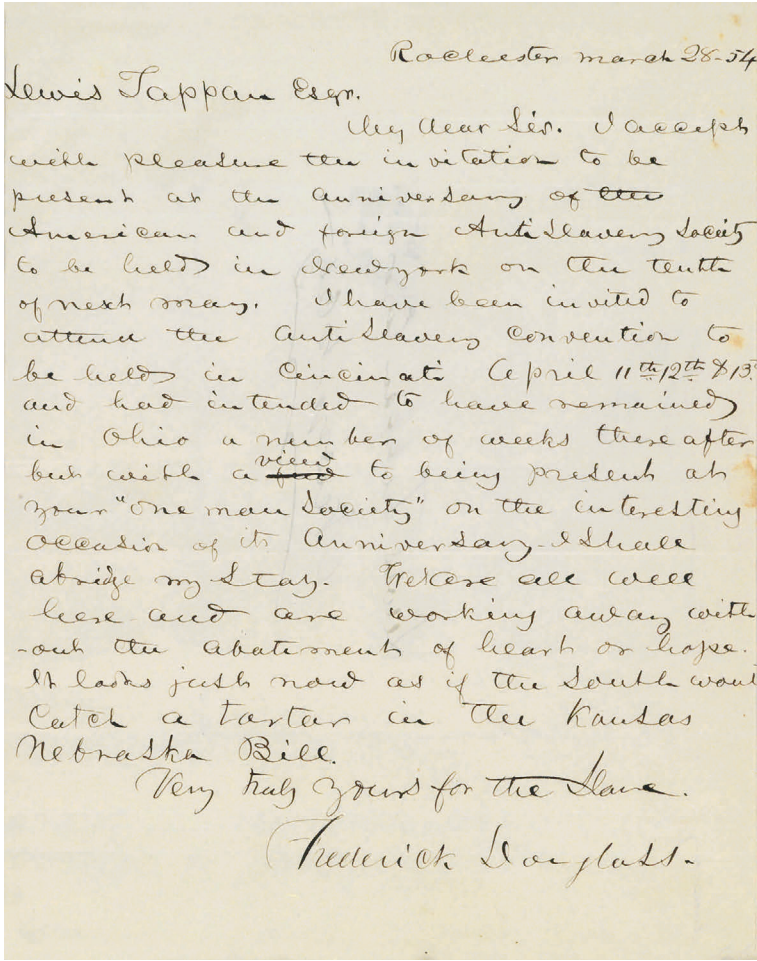 Rochester march 28-54
Lewis Tappan Esqr.
My dear Sir. I accept
with pleasure the invitation to be
present at the anniversary of the
American and foreign Anti Slavery Society
to be held in New york on the tenth
of next may. I have been invited to
attend the Anti Slavery convention to
be held in Cincinati April 11th 12th & 13.
and had intended to have remained
in Ohio a number of weeks there after
but with a view to being present at
your "one man Society" on the interesting
occasion of its Anniversary - I shall
abridge my stay. We are all well
here and are working away with
-out the abatement of heart or hope.
It looks just now as if the South would
Catch a tartar in the Kansas
Nebraska Bill.
Very truly yours for the Slave.
Frederick Douglass.